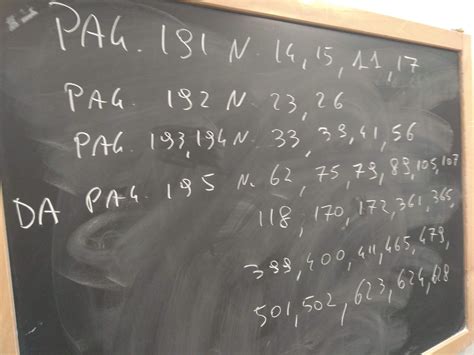 PAG. 191 N. 14, 15, 11, 17
PAG. 192 N. 23, 26
PAG. 193, 194 N. 33, 39, 41, 56
DA PAG. 195 N. 62, 75, 79, 89, 105, 107
118, 170, 172, 361, 365,
399, 400, 411, 465, 479,
501, 502, 623, 624, 628